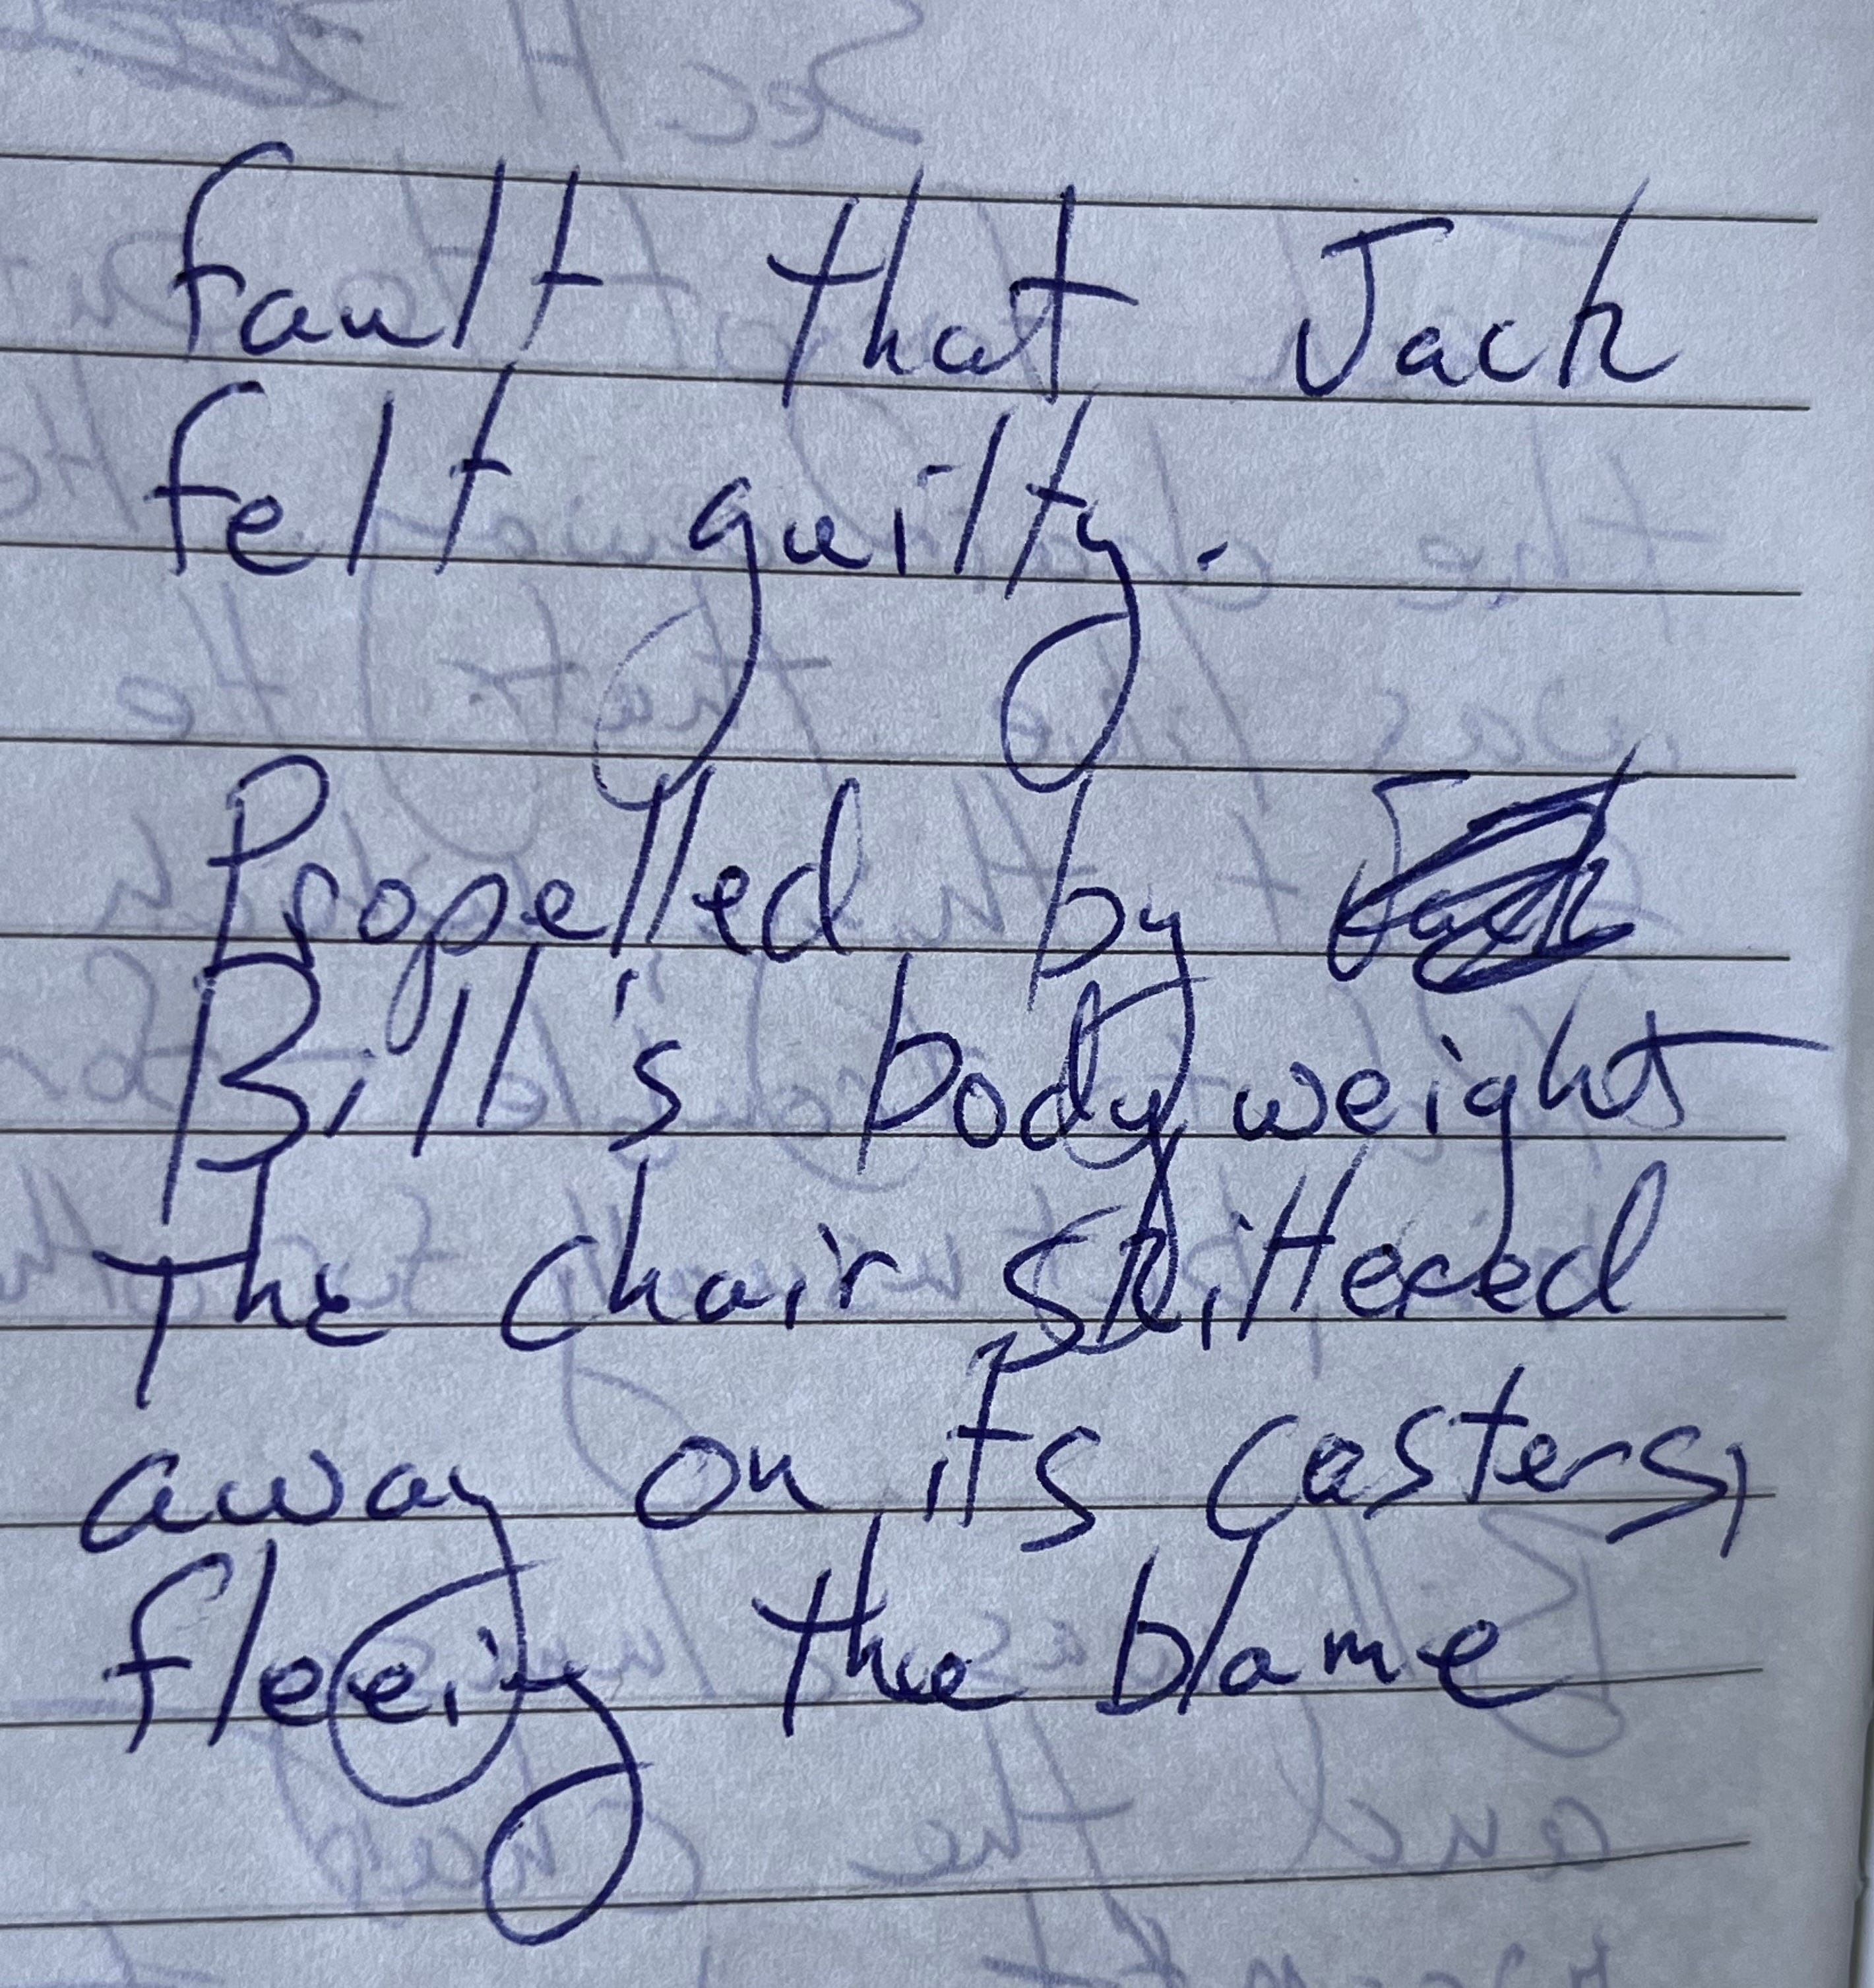 fault that Jack
felt guilty.
Propelled by
Bill's body weight
the chair skittered
away on its casters,
fleeing the blame